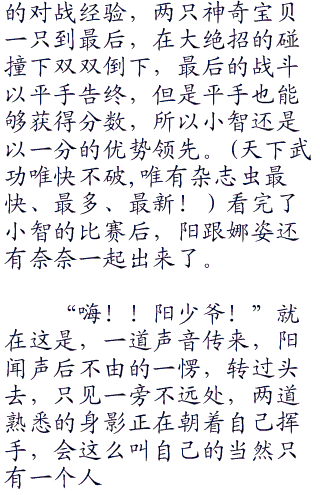 的对战经验，两只神奇宝贝
一只到最后，在大绝招的碰
撞下双双倒下，最后的战斗
以平手告终，但是平手也能
够获得分数，所以小智还是
以一分的优势领先。(天下武
功唯快不破,唯有杂志虫最
快、最多、最新！) 看完了
小智的比赛后，阳跟娜姿还
有奈奈一起出来了。
“嗨！！阳少爷！”就
在这是，一道声音传来，阳
闻声后不由的一愣，转过头
去，只见一旁不远处，两道
熟悉的身影正在朝着自己挥
手，会这么叫自己的当然只
有一个人